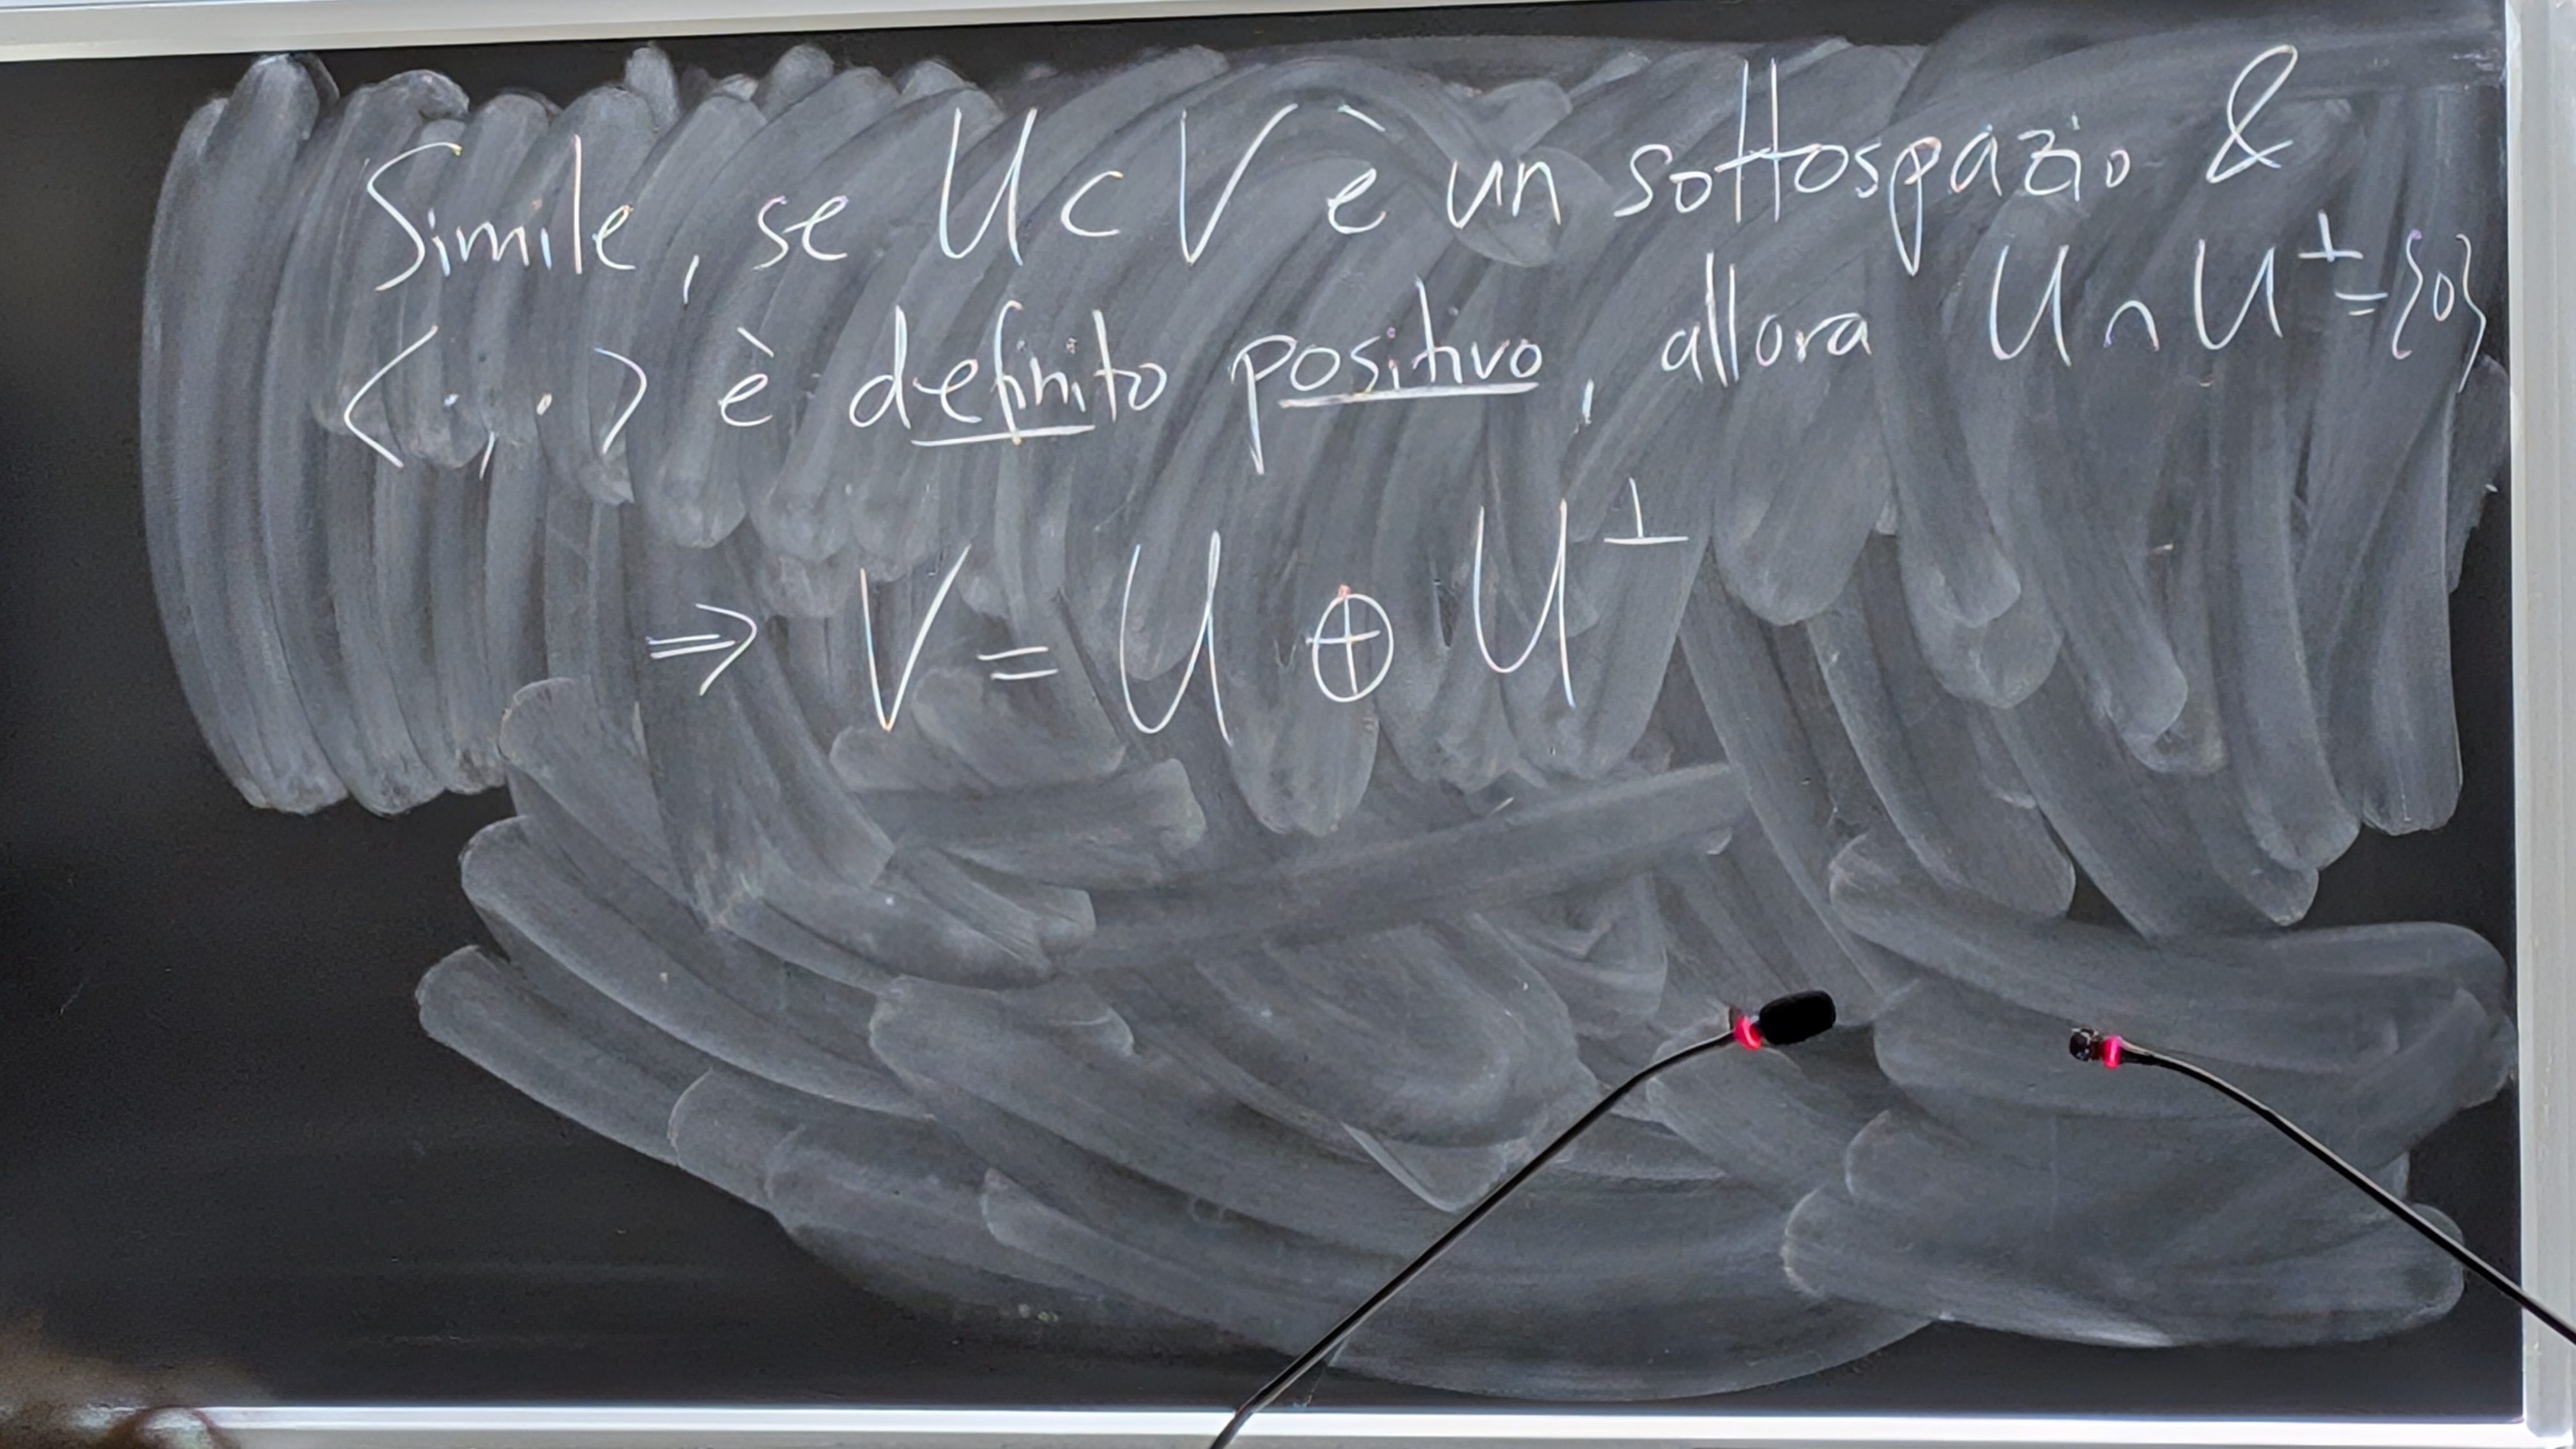 Simile, se U ⊂ V è un sottospazio &
⟨·,·⟩ è definito positivo, allora U ∩ U^⊥ = {0}
⇒ V = U ⊕ U^⊥